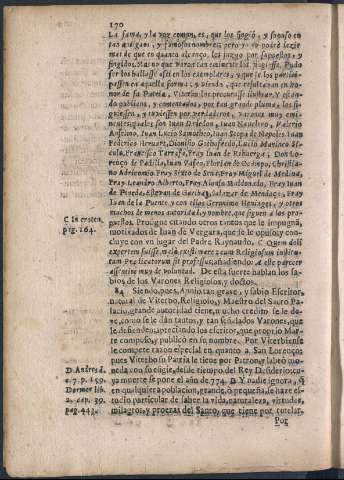 170
la fama, y la voz comun, es, que los fingió, y supuso en
tan antiguos, y famosos nombres; pero yo no podré dezir
mas de que en quanto alcanço, los juzgo por supuestos, y
fingidos. Mas no que varon tan eminente los fingiesse. Pudo
ser los hallasse assi en los exemplares, y que se los partici-
passen en aquella forma; y siendo, que resultavan en ho-
nor de su Patria, Viterbo los procurasse ilustrar. Y estan-
do publicos, y comentados, por tan grande pluma, los si-
guiessen, y tuviessen por verdaderos, varones muy emi-
nentes; quales son Iuan Driedon, Iuan Nauclero, Valerio
Anselmo, Iuan Lucio Samotheo, Iuan Stopa de Napoles, Iuan
Federico Hervart, Dionisio Gothofredo, Lucio Marineo Si-
culo, Francisco Tarrafa, Fray Iuan de Rihuerga, Don Lo-
renço de Padilla, Iuan Vaseo, Florian de Ocampo, Christia-
no Adricomio, Fray Sixto de Sena, Fray Miguel de Medina,
Fray Leandro Alberto, Fray Alonso Maldonado, Fray Iuan
de Pineda, Estevan de Garibay, la Iuez de Mendoça, Fray
Iuan de la Puente, y con ellos Geronimo Heniages, y otros
muchos de menos autoridad, y nombre, que siguen a los pro-
puestos. Prosigue citando otros tantos que le impugnã,
C In erotem.
pag. 264.
motivados de Iuan de Vergara, que se le opuso, y con-
cluye con vn lugar del Padre Raynaudo. C Quem dolẽ
expertem fuisse, melà existimem, cum Religiosum institu-
tum Prædicatorum sit professus, añadiendo: A este parecer
assentire muy de voluntad. De esta suerte hablan los sa-
bios de los Varones Religiosos, y doctos.
84 Siendo, pues, Annio tan grave, y sabio Escritor,
natural de Viterbo, Religioso, y Maestro del Sacro Pa-
lacio, grande autoridad tiene, n su credito se le de-
ve, como se le dán tantos, y tan señalados Varones, que
le defienden, apreciando los escritos, que proprio Mar-
te compuso, y publicó en su nombre. Por Viterbiense
le compete razon especial en quanto a San Lorenço;
pues Viterbo su Patria le tiene por Patron, y labrò mo-
D. Andres d.
c. 7. p. 159.
Dormer lib.
2. cap. 39.
pag. 443.
neda con su efigie, desde tiempo del Rey Desiderio; cu-
ya muerte se pone el año de 774. D Y nadie ignora, q̃
en qualquiera poblacion, grande, ó pequeña, se haze es-
tudio particular de saber la vida, naturaleza, virtudes,
milagros, y proezas del Santo, que tiene por tutelar.
Por